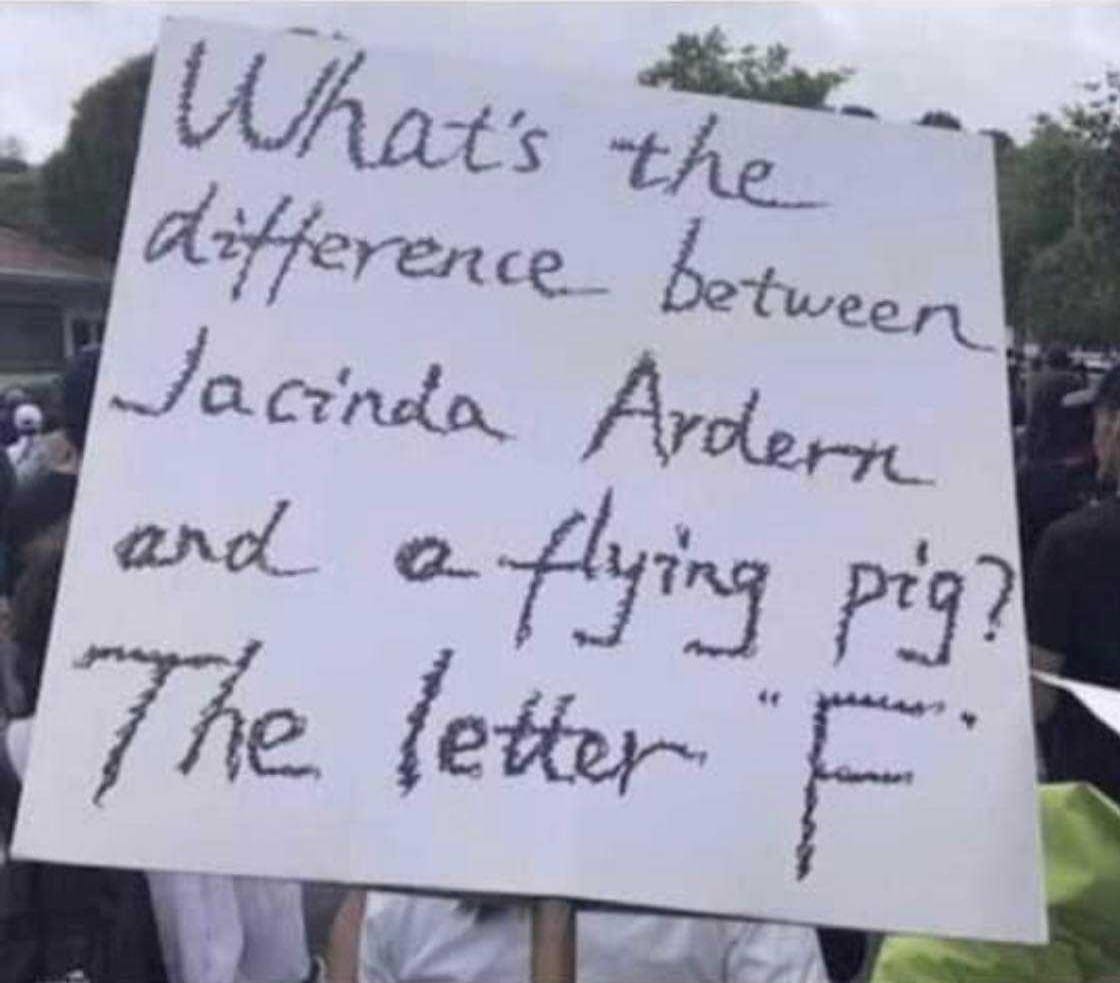 What's the
difference between
Jacinda Ardern
and a flying pig?
The letter "F"